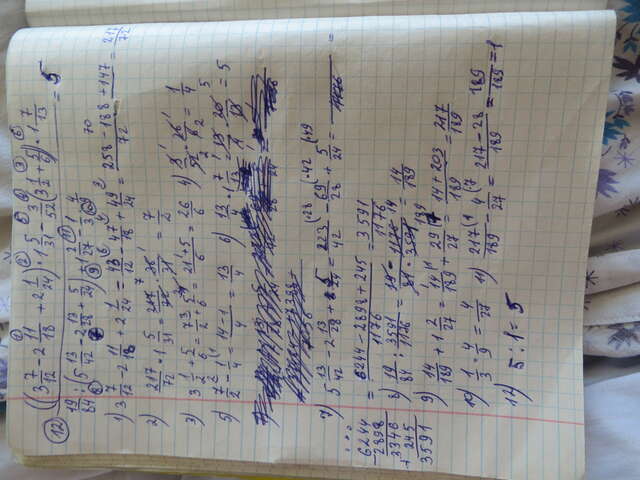 12 ((3 7/12 - 2 11/18 + 2 1/24) · 1 5/31 - 3/52 (3 1/2 + 5/6)) · 1 7/13
19/84 : (5 13/42 - 2 13/28 + 5/24) + 1 2/27 - 1/3 · 4/9 = 5
1) 3 7/12 - 2 11/18 + 2 1/24 = 43/12 - 47/18 + 49/24 = 258 - 188 + 147/72 = 217/72
2) 217/72 · 1 5/31 = 217/72 · 36/31 = 7/2
3) 3 1/2 + 5/6 = 7/2 + 5/6 = 21 + 5/6 = 26/6 4) 3/52 · 26/6 = 1/4
5) 7/2 - 1/4 = 14 - 1/4 = 13/4 6) 13/4 · 1 7/13 = 13/4 · 20/13 = 5
7) 5 13/42 - 2 13/28 + 5/24 = 223/42 - 69/28 + 5/24 =
= 6244 - 2898 + 245/1176 = 3591/1176
8) 19/84 : 3591/1176 = 19 · 1176/84 · 3591 = 14/189
9) 14/189 + 1 2/27 = 14/189 + 29/27 = 14 + 203/189 = 217/189
10) 1/3 · 4/9 = 4/27 11) 217/189 - 4/27 = 217 - 28/189 = 189/189 = 1
12) 5 : 1 = 5
6244
- 2898
3346
+ 245
3591